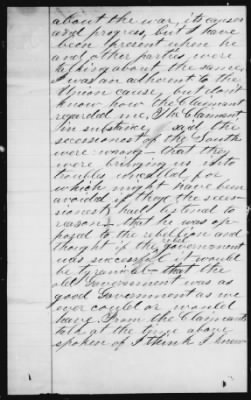 about the war, its causes
and progress, but I have
been present when he
and other parties were
talking about the same.
I was an adherent to the
Union cause, but don't
know how the Claimant
regarded me. The Claimant
in substance, said the
secessionest of the South
were wrong - that they
were bringing us into
troubles
which might have been
avoided if those the seces-
sionest had listened to
reason - that he was op-
posed to the rebellion and
thought if the rebel government
was successful it would
be tyranical - that the
old Government was as
good Government as we
ever could or would
have. From the Claimants
talk at the time above
spoken of I think I knew